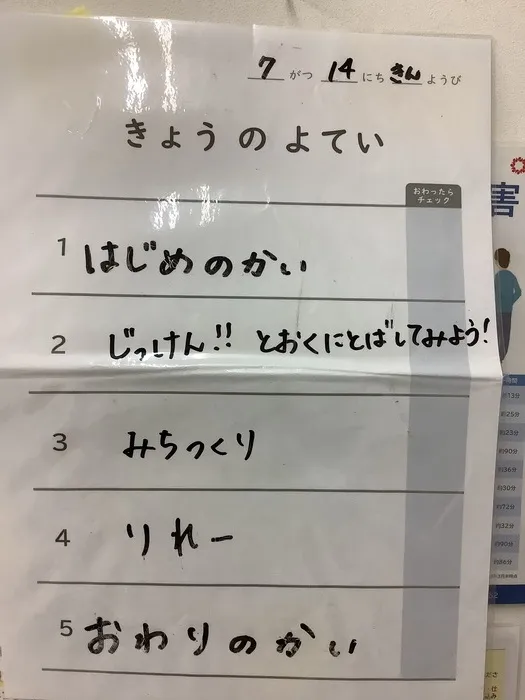 7 がつ 14 にち きん ようび
きょうのよてい
おわったら
チェック
1 はじめのかい
2 じっけん!! とおくにとばしてみよう!
3 みちつくり
4 りれー
5 おわりのかい
害
約13分
約25分
約23分
約90分
約36分
約30分
約72分
約32分
約90分
約86分